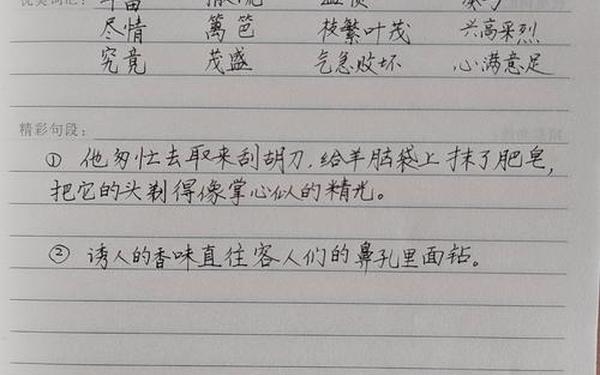 尽情 篱笆 枝繁叶茂 兴高采烈
究竟 茂盛 气急败坏 心满意足
精彩句段:
① 他匆忙去取来刮胡刀,给羊脑袋上抹了肥皂,
把它的头剃得像掌心似的精光。
② 诱人的香味直往客人们的鼻孔里面钻。